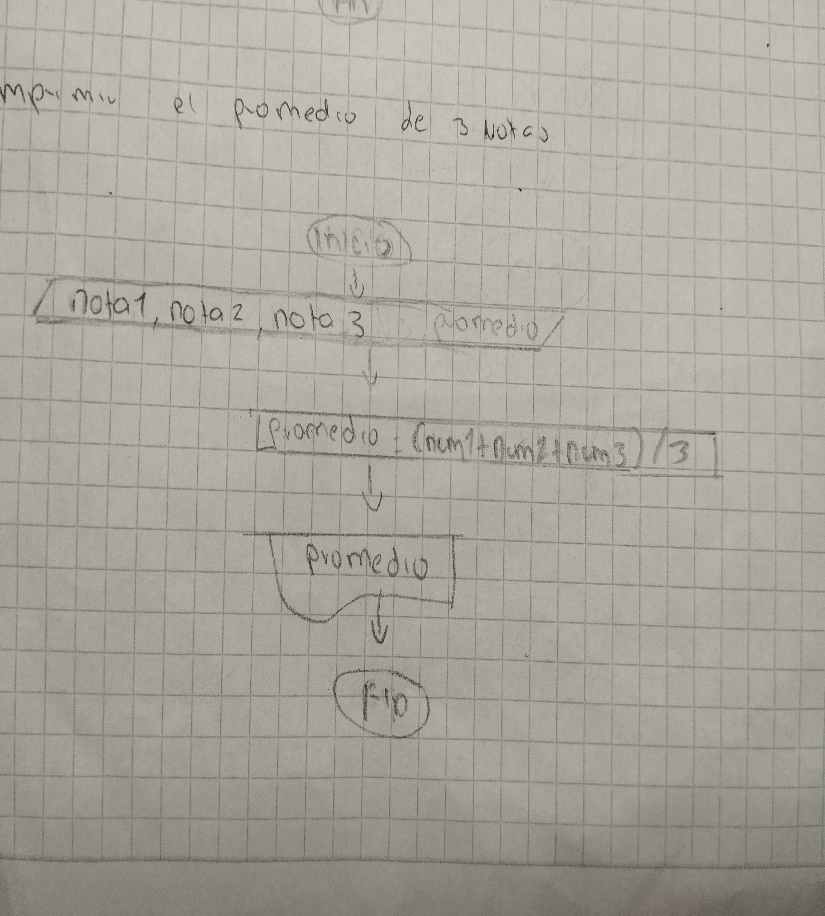 mprimir el promedio de 3 Notas
Inicio
nota1, nota2, nota 3 promedio
promedio = (num1+num2+num3) / 3
promedio
Fin